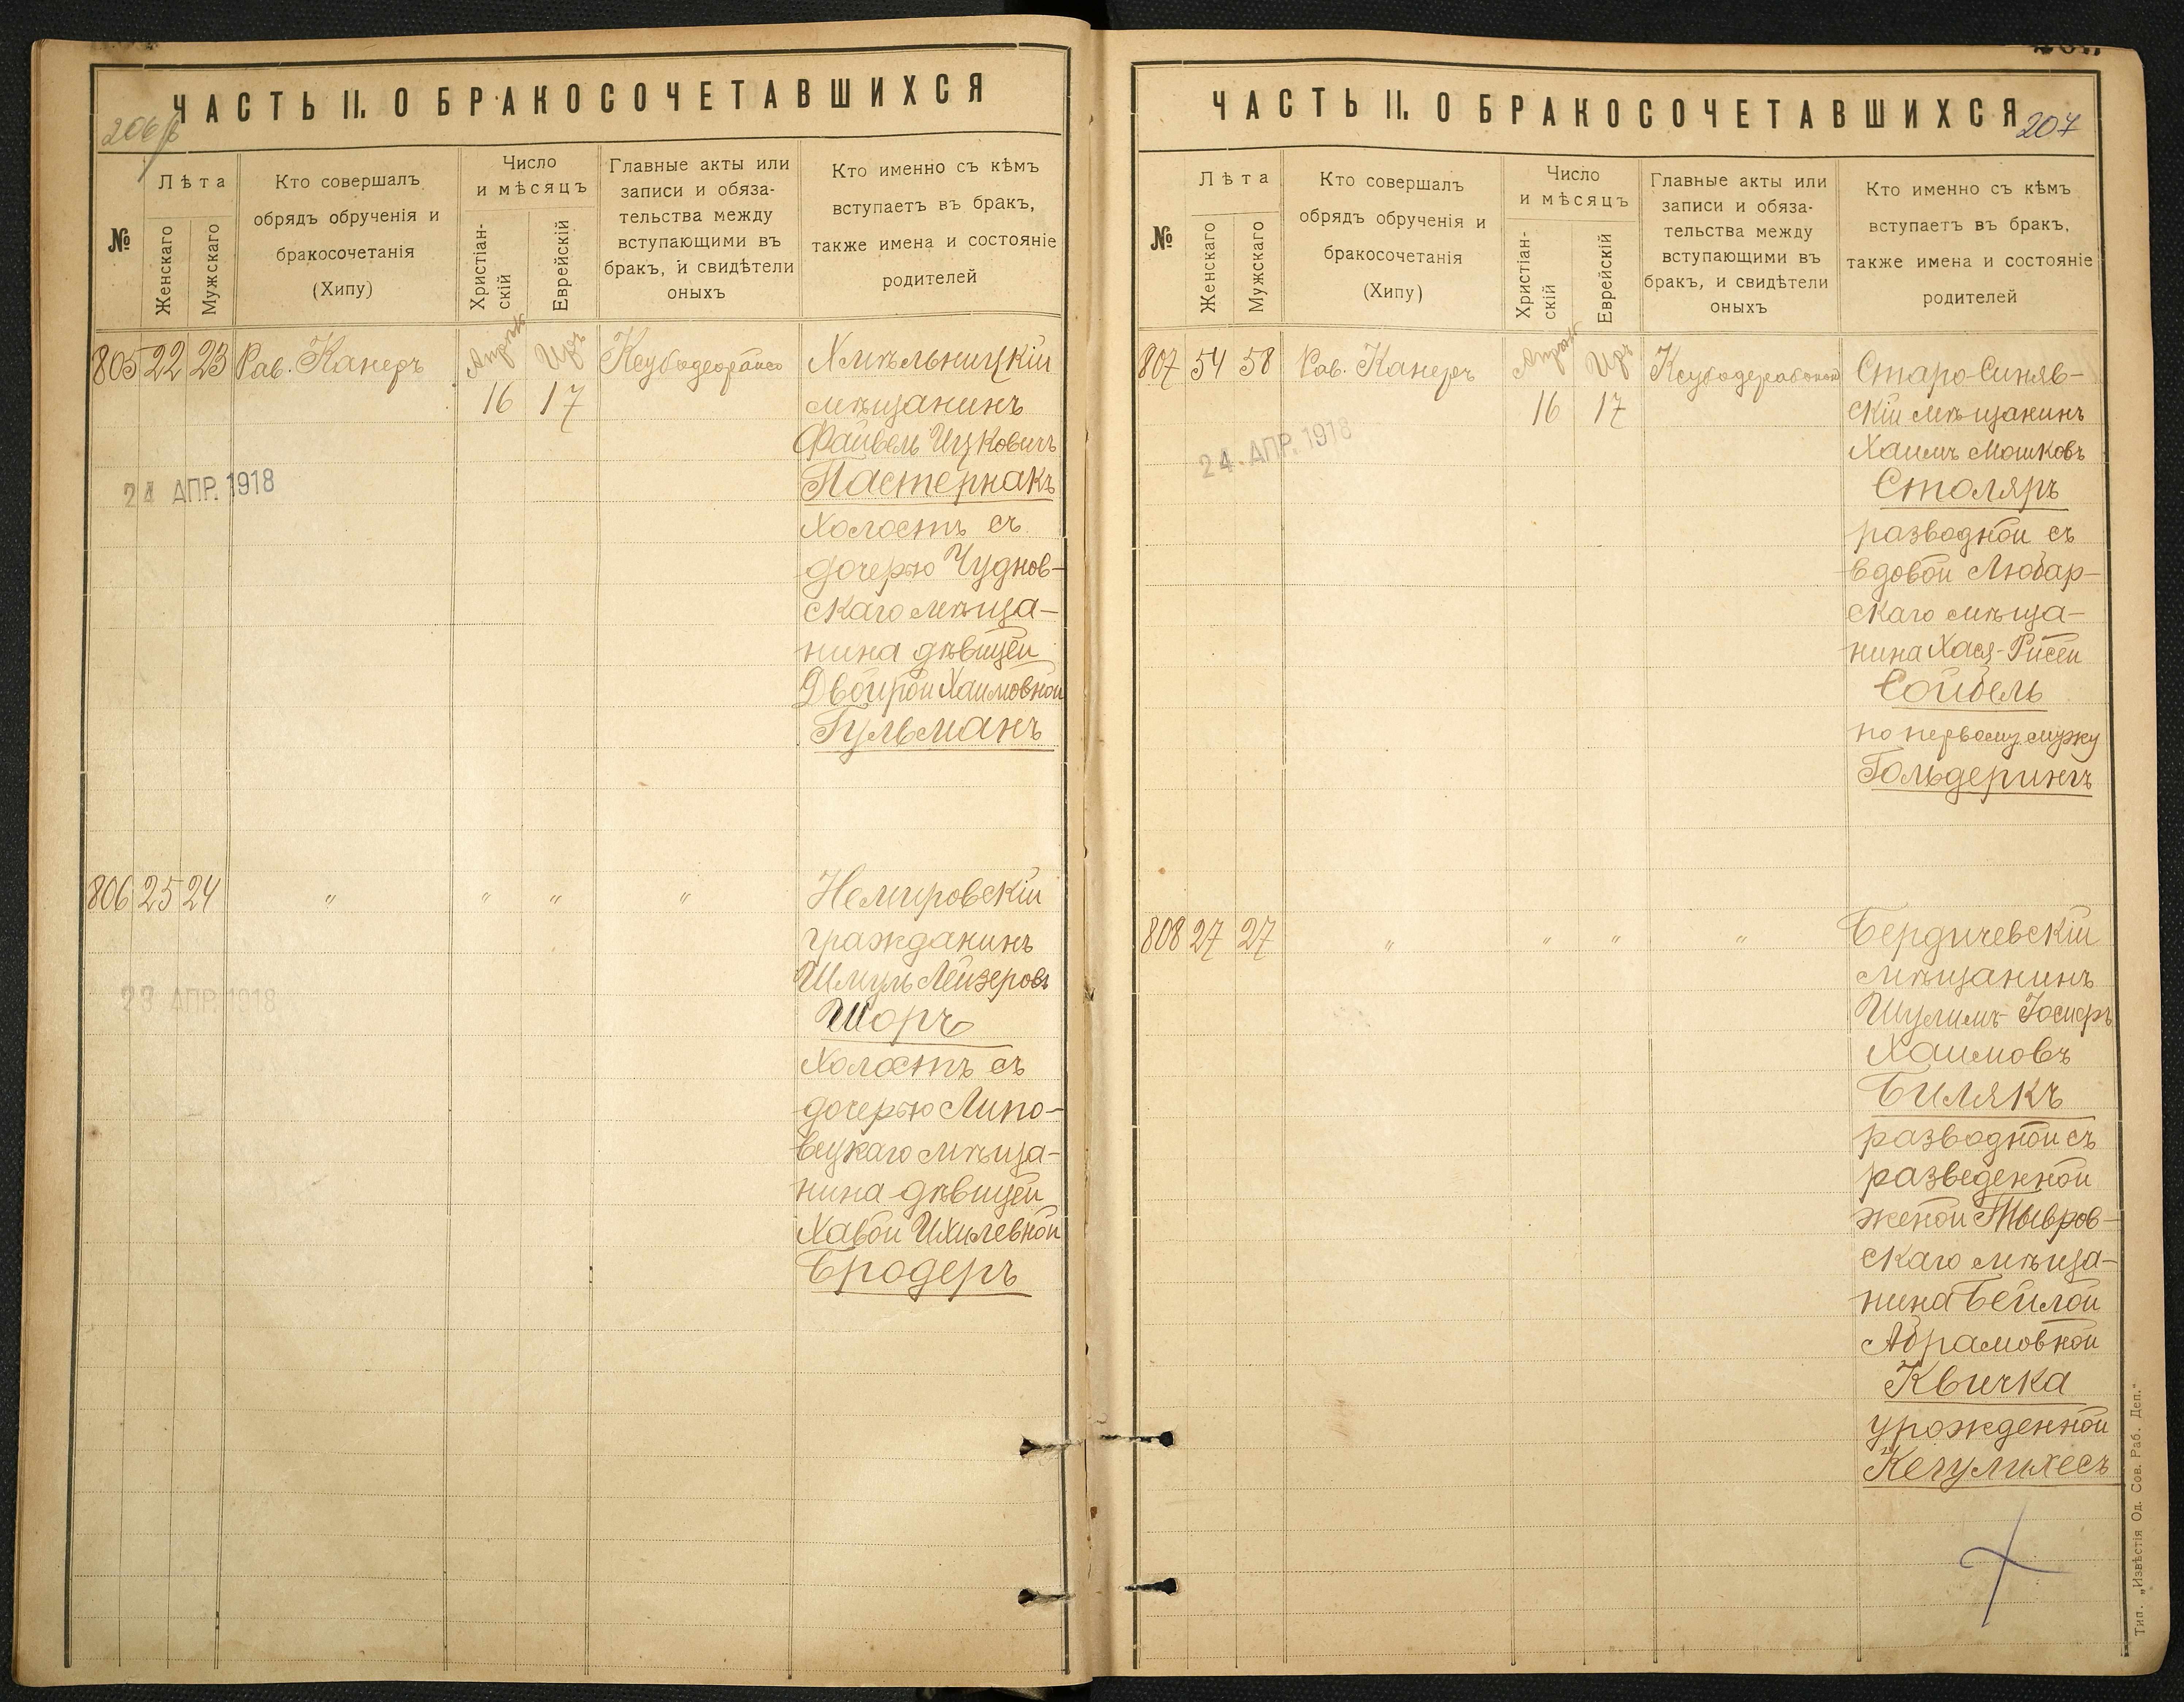 ЧАСТЬ II. О БРАКОСОЧЕТАВШИХСЯ
№
Лѣта
Женскаго
Мужскаго
Кто совершалъ
обрядъ обрученія и
бракосочетанія
(Хипу)
Число
и мѣсяцъ
Христіан-
скій
Еврейскій
Главные акты или
записи и обяза-
тельства между
вступающими въ
бракъ, и свидѣтели
оныхъ
Кто именно съ кѣмъ
вступаетъ въ бракъ,
также имена и состояніе
родителей
805 22 23 Рав. Канеръ
16 17
24 АПР. 1918
Хмѣльницкій
мѣщанинъ
Файвель Ицковичъ
Пастернакъ
холостъ съ
дочерью Чуднов-
скаго мѣща-
нина дѣвицей
Двойрой Хаимовной
Гульманъ
806 25 24 " " " "
23 АПР. 1918
Немировскій
гражданинъ
Шмуль Лейзеровъ
Шоръ
холостъ съ
дочерью Липо-
вецкаго мѣща-
нина дѣвицей
Хавой Ихилевной
Бродеръ
ЧАСТЬ II. О БРАКОСОЧЕТАВШИХСЯ
207
№
Лѣта
Женскаго
Мужскаго
Кто совершалъ
обрядъ обрученія и
бракосочетанія
(Хипу)
Число
и мѣсяцъ
Христіан-
скій
Еврейскій
Главные акты или
записи и обяза-
тельства между
вступающими въ
бракъ, и свидѣтели
оныхъ
Кто именно съ кѣмъ
вступаетъ въ бракъ,
также имена и состояніе
родителей
807 54 58 Рав. Канеръ
16 17
24. АПР. 1918
Старо-Синяв-
скій мѣщанинъ
Хаимъ Мошковъ
Столяръ
разводной съ
вдовой Любар-
скаго мѣща-
нина Хася-Рисей
Сойбель
по первому мужу
Гольдерингъ
808 27 27 " " " "
Бердичевскій
мѣщанинъ
Шулимъ-
Хаимовъ
Билякъ
разводной съ
разведенной
женой Тывров-
скаго мѣща-
нина Бейлой
Абрамовной
Квичка
урожденной
Кегулихесъ
Тип. „Извѣстія Од. Сов. Раб. Деп."